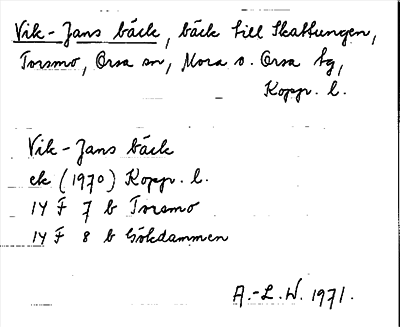 Vik-Jans bäck, bäck till Skattungen,
Torsmo, Orsa sn, Mora o. Orsa tg,
Koppr. l.
Vik-Jans bäck
ek (1970) Koppr. l.
14 F 7 b Torsmo
14 F 8 b Gökdammen
A.-L. W. 1971.